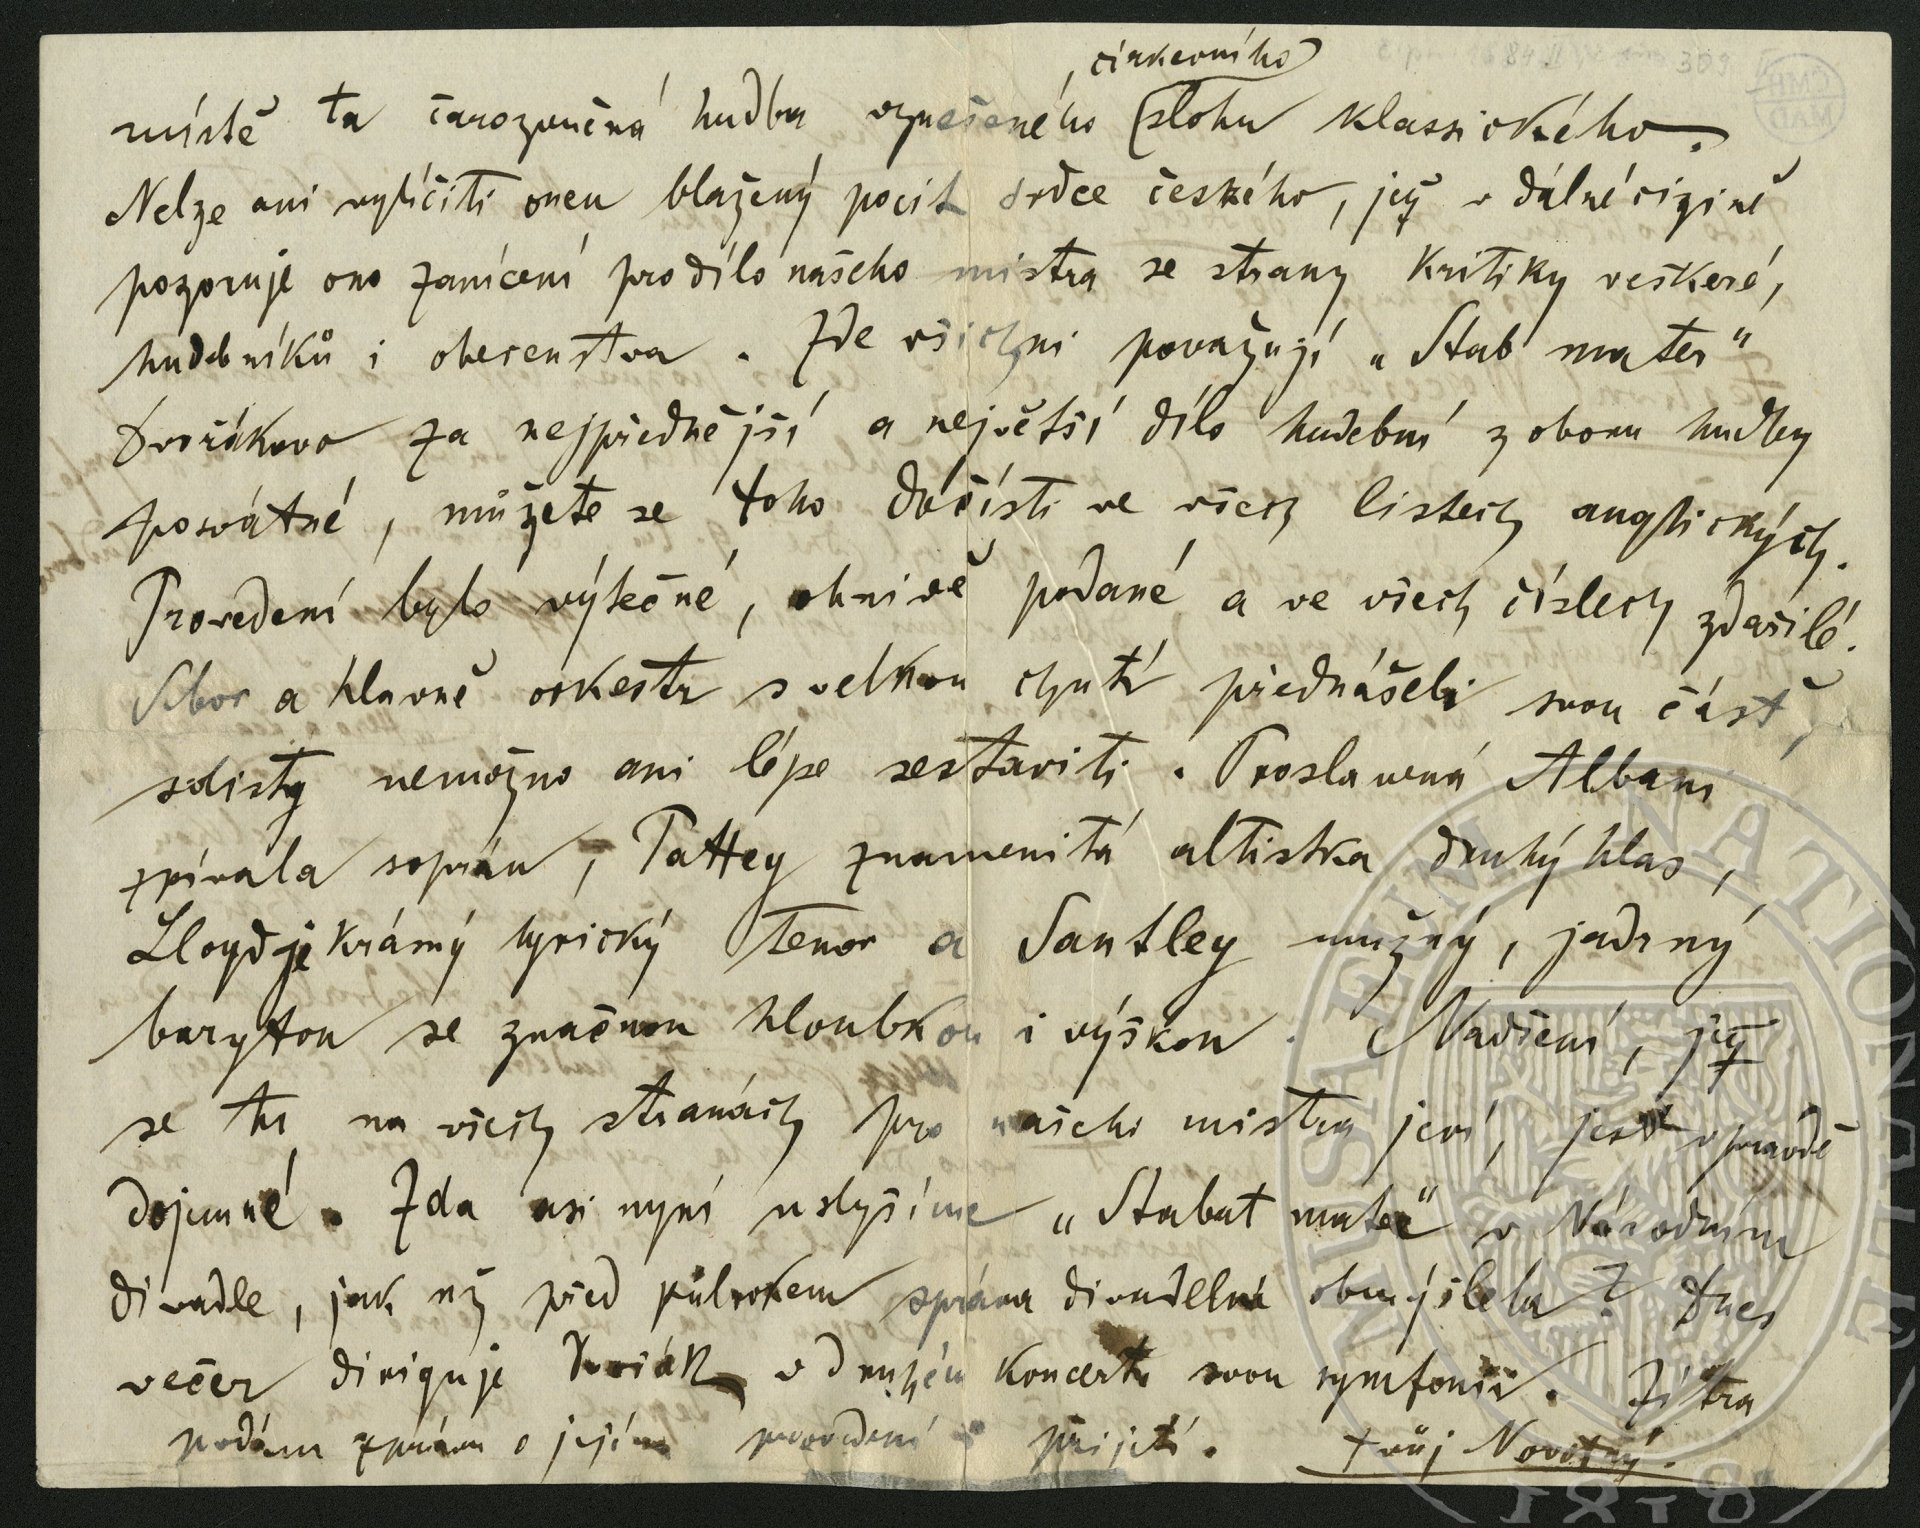 církevního
místě ta čarozvučná hudba vznešeného slohu klassického.
Nelze ani vylíčiti onen blažený pocit srdce českého, jež v dálné cizině
pozoruje ono zanícení pro dílo našeho mistra se strany kritiky veškeré,
hudebníků i obecenstva. Zde všichni považují „Stab mater"
Dvořákovo za nejpřednější a největší dílo hudební z oboru hudby
posvátné, můžete se toho dočísti ve všech listech anglických.
Provedení bylo výtečné, ohnivě podané a ve všech číslech zdařilé.
Sbor a hlavně orkestr s velkou chutí přednášeli svou část,
solisty nemožno ani lépe sestaviti. Proslavená Albani
zpívala soprán, Pattey znamenitá altistka druhý hlas,
Lloyd je krásný lyrický tenor a Santley mužný, jadrný
baryton se značnou hloubkou i výškou. Nadšení, jež
se tu na všech stranách pro našeho mistra jeví, jest v pravdě
dojemné. Zda asi nyní uslyšíme „Stabat mater" v Národním
divadle, jak už před půlrokem správa divadelná obmýšlela? Dnes
večer diriguje Dvořák v druhém koncertu svou symfonii. Zítra
podám zprávu o jejím provedení a přijetí. tvůj Novotný.
MUSAEUM NATIONALE
1818